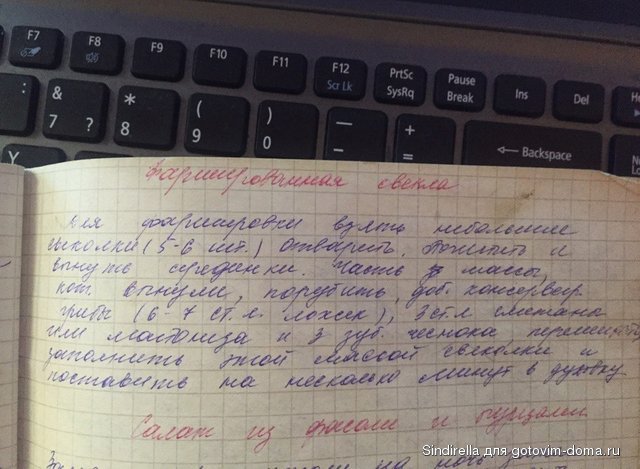 F7 F8 F9 F10 F11 F12 PrtSc Pause Ins Del
Scr Lk SysRq Break
& * ( ) — +
7 ? 8 9 0 — = Backspace
Y
Фаршированная свекла
Для фаршировки взять небольшие
свеколки (5-6 шт.) отварить. Почистить и
вынуть серединки. Часть массы,
кот. вынули, порубить, доб. консервир.
грибы (6-7 ст. л. ложек), 3 ст. л сметана
или майонеза и 3 зуб. чеснока перемешать
заполнить этой массой свеколки и
поставить на несколько минут в духовку
Салат из фасоли и
Sindirella для gotovim-doma.ru